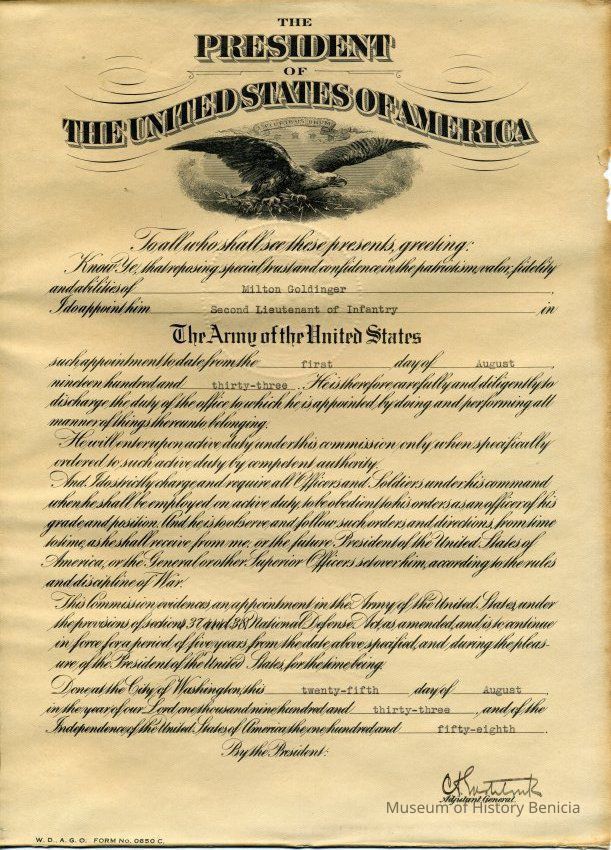 THE
PRESIDENT
OF
THE UNITED STATES OF AMERICA
E PLURIBUS UNUM
To all who shall see these presents, greeting:
Know Ye, that reposing special trust and confidence in the patriotism, valor, fidelity
and abilities of Milton Goldinger
I do appoint him Second Lieutenant of Infantry in
The Army of the United States
such appointment to date from the first day of August
nineteen hundred and thirty-three . He is therefore carefully and diligently to
discharge the duty of the office to which he is appointed, by doing and performing all
manner of things thereunto belonging.
He will enter upon active duty under this commission only when specifically
ordered to such active duty by competent authority.
And I do strictly charge and require all Officers and Soldiers under his command
when he shall be employed on active duty to be obedient to his orders as an officer of his
grade and position. And he is to observe and follow such orders and directions, from time
to time, as he shall receive from me, or the future President of the United States of
America, or the General or other Superior Officers set over him, according to the rules
and discipline of War.
This Commission evidences an appointment in the Army of the United States, under
the provisions of sections 37 and 38, National Defense Act, as amended, and is to continue
in force for a period of five years from the date above specified, and during the pleas-
ure of the President of the United States, for the time being.
Done at the City of Washington, this twenty-fifth day of August
in the year of our Lord one thousand nine hundred and thirty-three , and of the
Independence of the United States of America the one hundred and fifty-eighth .
By the President:
Adjutant General.
Museum of History Benicia
W. D., A. G. O. FORM No. 0650 C.